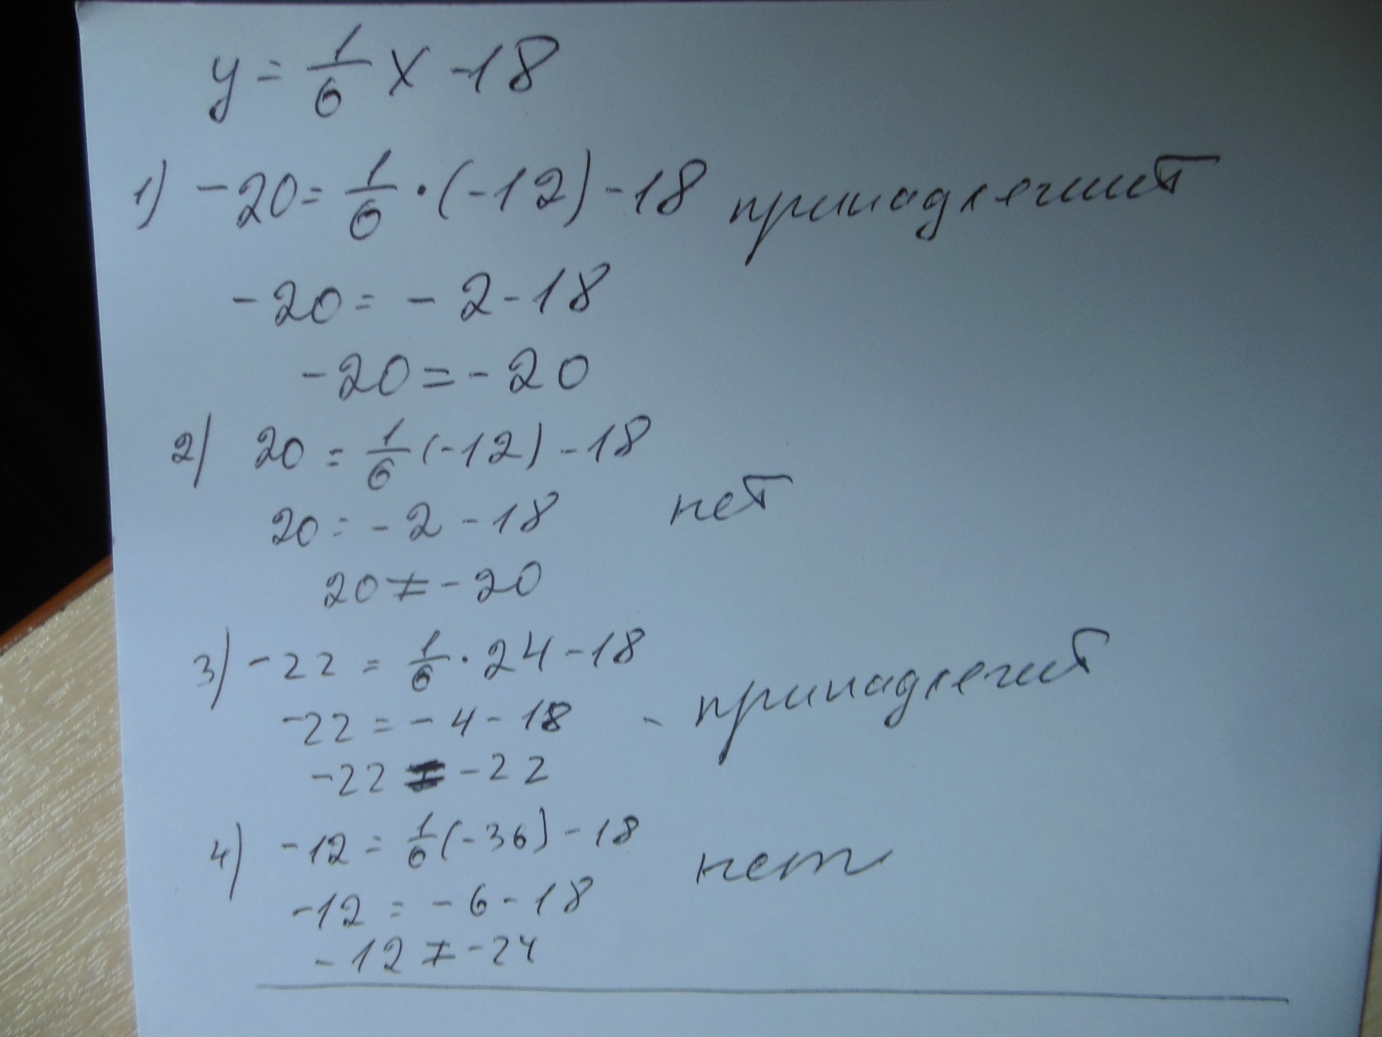 y = 1/6 x - 18
1) -20 = 1/6 · (-12) - 18 принадлежит
-20 = - 2 - 18
-20 = - 20
2) 20 = 1/6 (-12) - 18
20 = - 2 - 18 нет
20 ≠ - 20
3) -22 = 1/6 · 24 - 18
-22 = - 4 - 18 - принадлежит
-22 = -22
4) -12 = 1/6 (-36) - 18 нет
-12 = - 6 - 18
-12 ≠ -24